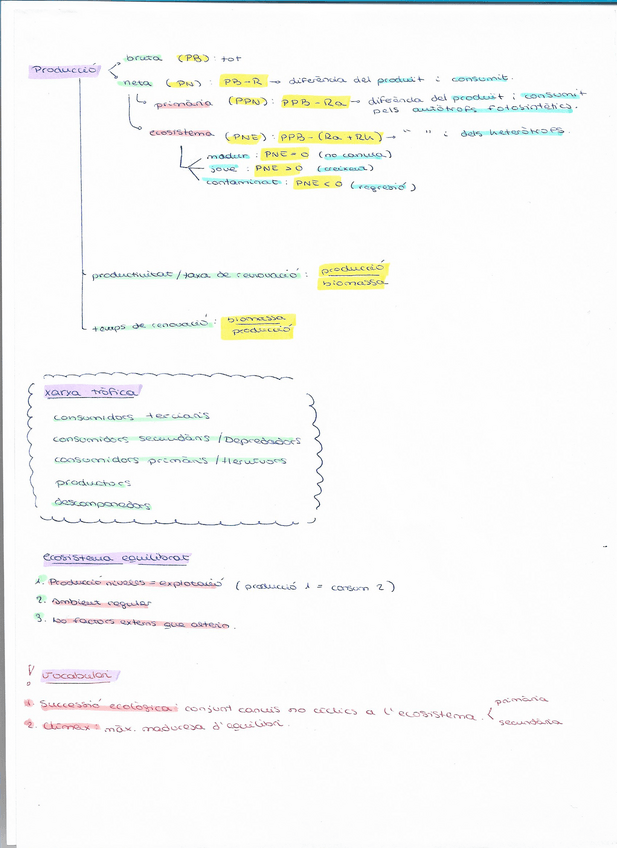 Producció
bruta (PB): tot
neta (PN): PB-R → diferència del produit i consumit.
primària (PPN): PPB-Ra → diferència del produit i consumit
pels autòtrofs fotosintètics.
ecosistema (PNE): PPB-(Ra+Rh) → " " i dels heteròtrofs.
madur: PNE=0 (no canvia)
jove: PNE>0 (creixed)
contaminat: PNE<0 (regresió)
productivitat/taxa de renovació: producció
biomassa
temps de renovació: biomassa
producció
xarxa tròfica
consumidors terciaris
consumidors secundaris/Depredadors
consumidors primaris/Herbívors
productors
descomponedors
ecosistema equilibrat
1. Producció nivells = explotació (produció 1 = consum 2)
2. ambient regular
3. No factors externs que alterin.
! Vocabulari
1. Successió ecològica: conjunt canvis no cíclics a l'ecosistema. primària
secundària
2. Clímax: màx. maduresa d'equilibri.